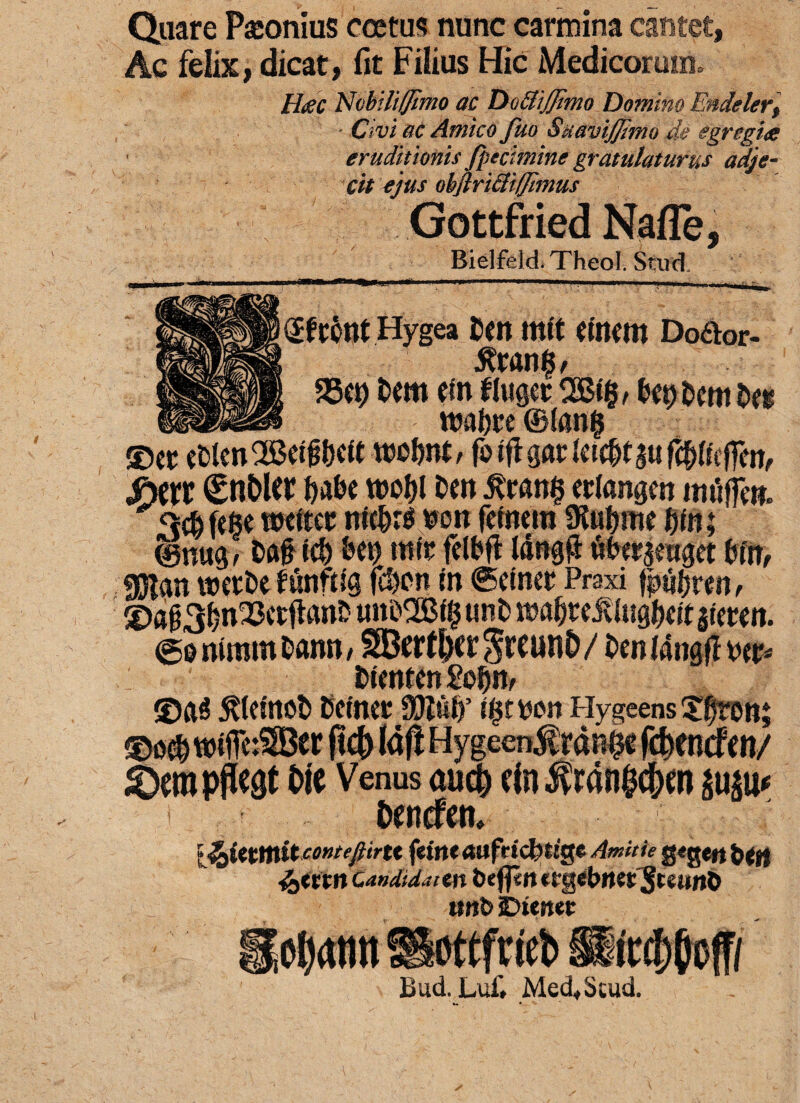 Quare Pæonius cœtus nunc carmina cantet,
Ac felix, dicat, ſit Filius Hic Medicorum.
Hæc Nobiliſſimo ac Doctiſſimo Domino Endeler,
Civi ac Amico ſuo Suaviſſimo de egregiæ
eruditionis ſpecimine gratulaturus adje-
cit ejus obſtrictiſſimus
Gottfried Naſſe,
Bielfeld. Theol. Stud.
BEkrönt Hygea den mit einem Doctor-
Krantz,
Bey dem ein kluger Witz, bey dem der
wahre Glantz
Der edlen Weißheit wohnt, ſo iſt gar leicht zu ſchlieſſen,
Herr Endler habe wohl den Krantz erlangen müſſen.
Ich ſetze weiter nichts von ſeinem Ruhme hin;
Gnug, daß ich bey mir ſelbſt längſt überzeuget bin,
Man werde künftig ſchon in Seiner Praxi ſpühren,
Daß Ihn Verſtand und Witz und wahre Klugheit zieren.
So nimm dann, Werther Freund / den längſt ver-
dienten Lohn,
Das Kleinod deiner Müh' itzt von Hygeens Thron;
Doch wiſſe: Wer ſich läſt Hygeen Kräntze ſchencken/
Dem pflegt die Venus auch ein Kräntzchen zuzu-
dencken.
Hiermit conteſtirte ſeine aufrichtige Amitie gegen den
Herrn Candidaten deſſen ergebner Freund
und Diener
Johann Gottfried Kirchhoff/
Bud. Luſ. Med. Stud.